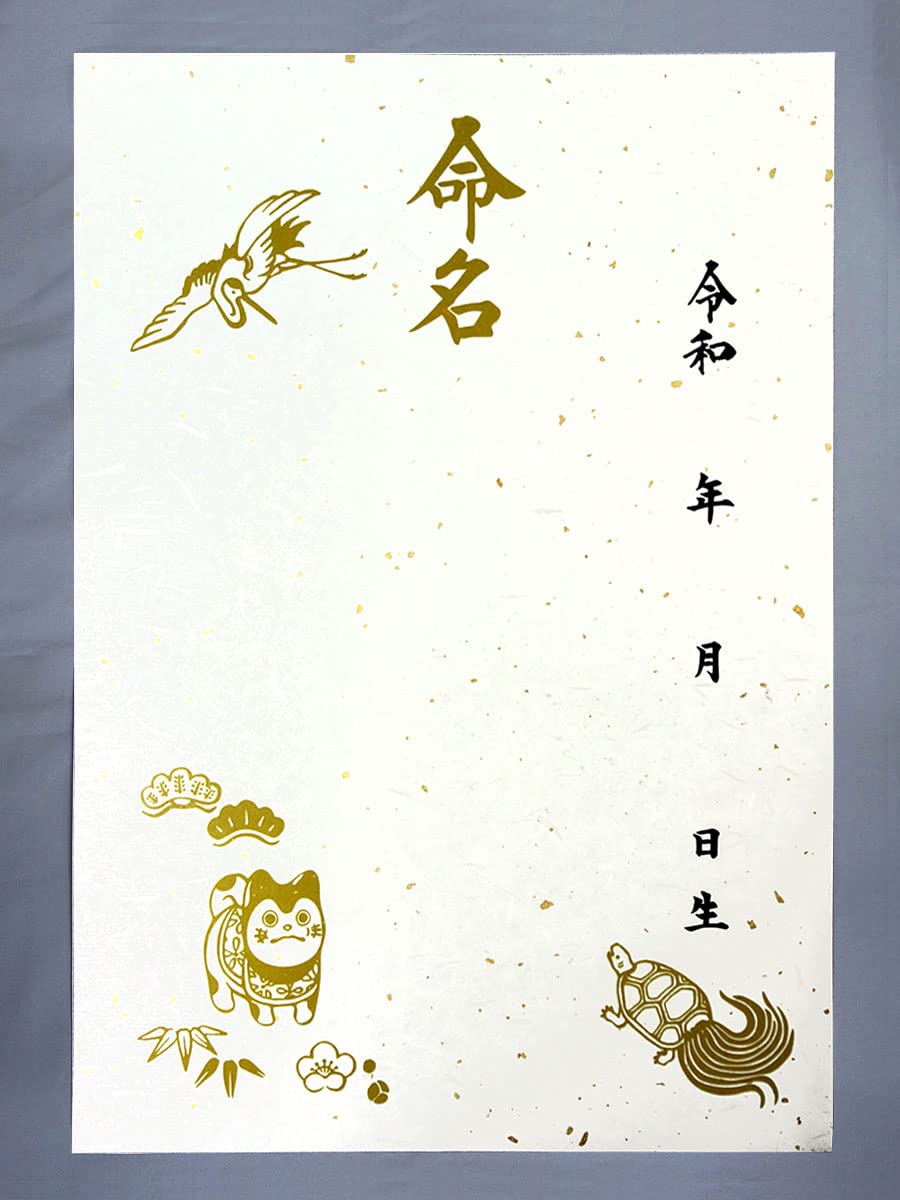 令和 年 月 日生
命名